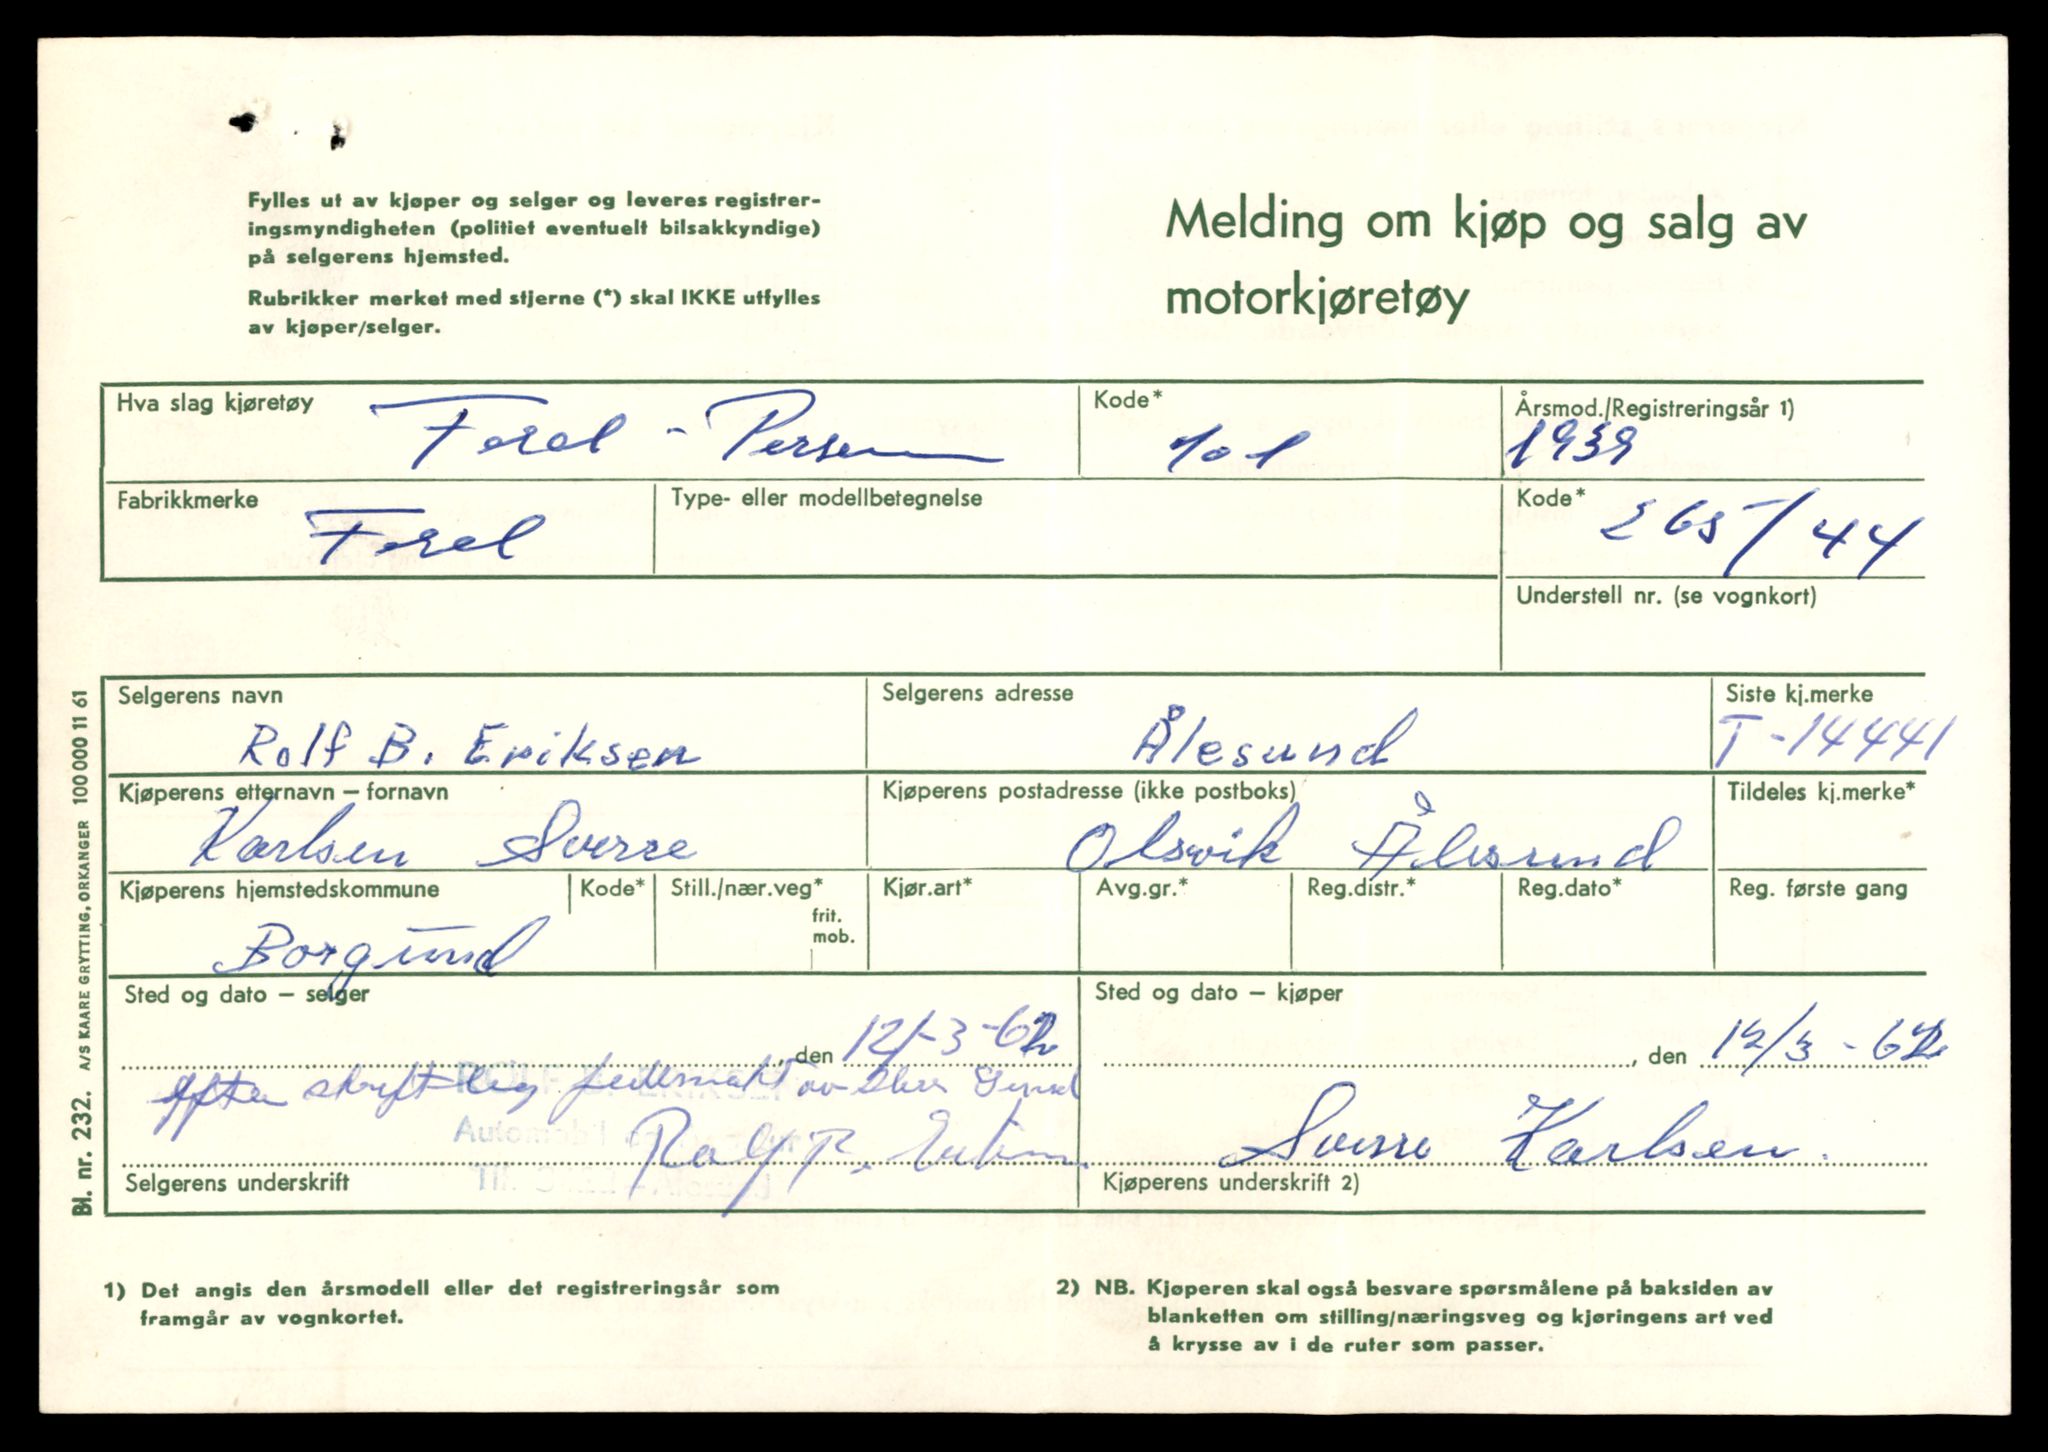 Fylles ut av kjøper og selger og leveres registrer-
ingsmyndigheten (politiet eventuelt bilsakkyndige)
på selgerens hjemsted.
Rubrikker merket med stjerne (*) skal IKKE utfylles
av kjøper/selger.
Melding om kjøp og salg av
motorkjøretøy
Hva slag kjøretøy
Ford - Person
Kode*
101
Årsmod./Registreringsår 1)
1939
Fabrikkmerke
Ford
Type- eller modellbetegnelse
Kode*
265/44
Understell nr. (se vognkort)
Selgerens navn
Rolf B. Eriksen
Selgerens adresse
Ålesund
Siste kj.merke
T-14441
Kjøperens etternavn – fornavn
Karlsen Sverre
Kjøperens postadresse (ikke postboks)
Olsvik Ålesund
Tildeles kj.merke*
Kjøperens hjemstedskommune
Borgund
Kode*
Still./nær.veg*
frit.
mob.
Kjør.art*
Avg.gr.*
Reg.distr.*
Reg.dato*
Reg. første gang
Sted og dato – selger
, den 12/-3-62
Sted og dato – kjøper
, den 12/3-62
efter skriftlig av
ROLF B. ERIKSEN
Rolf B. Eriksen
Selgerens underskrift
Sverre Karlsen.
Kjøperens underskrift 2)
1) Det angis den årsmodell eller det registreringsår som
framgår av vognkortet.
2) NB. Kjøperen skal også besvare spørsmålene på baksiden av
blanketten om stilling/næringsveg og kjøringens art ved
å krysse av i de ruter som passer.
Bl. nr. 232. A/S KAARE GRYTTING, ORKANGER 100 000 11 61